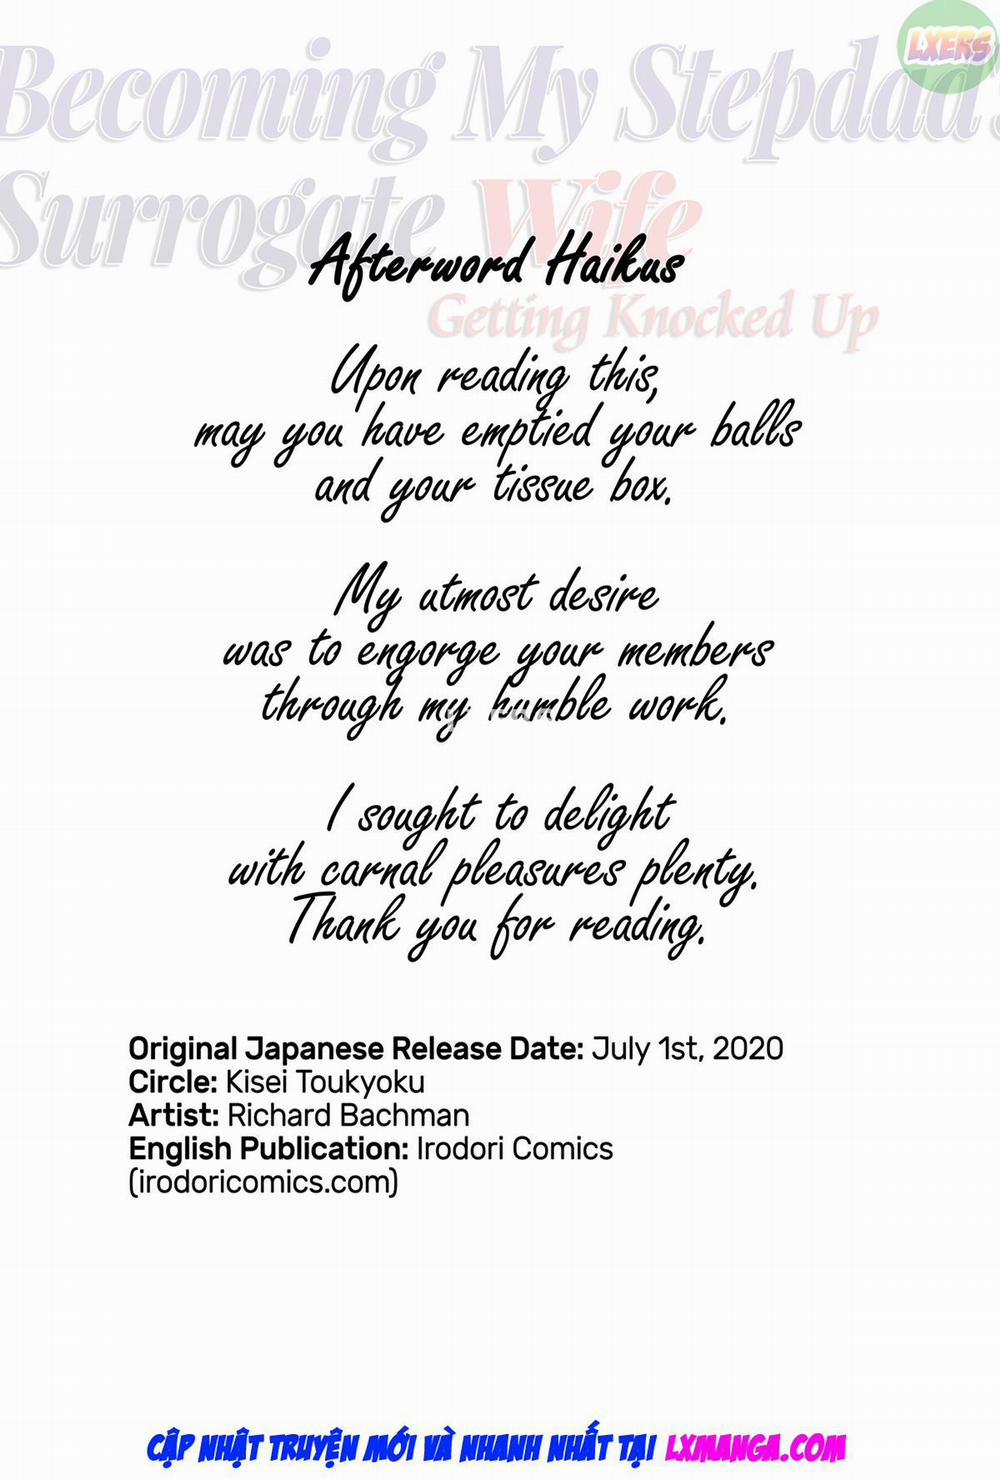 LXERS
Becoming My Stepdad's
Surrogate Wife
Getting Knocked Up
Afterword Haikus
Upon reading this,
may you have emptied your balls
and your tissue box.
My utmost desire
was to engorge your members
through my humble work.
I sought to delight
with carnal pleasures plenty.
Thank you for reading.
Original Japanese Release Date: July 1st, 2020
Circle: Kisei Toukyoku
Artist: Richard Bachman
English Publication: Irodori Comics
(irodoricomics.com)
CẬP NHẬT TRUYỆN MỚI VÀ NHANH NHẤT TẠI LXMANGA.COM